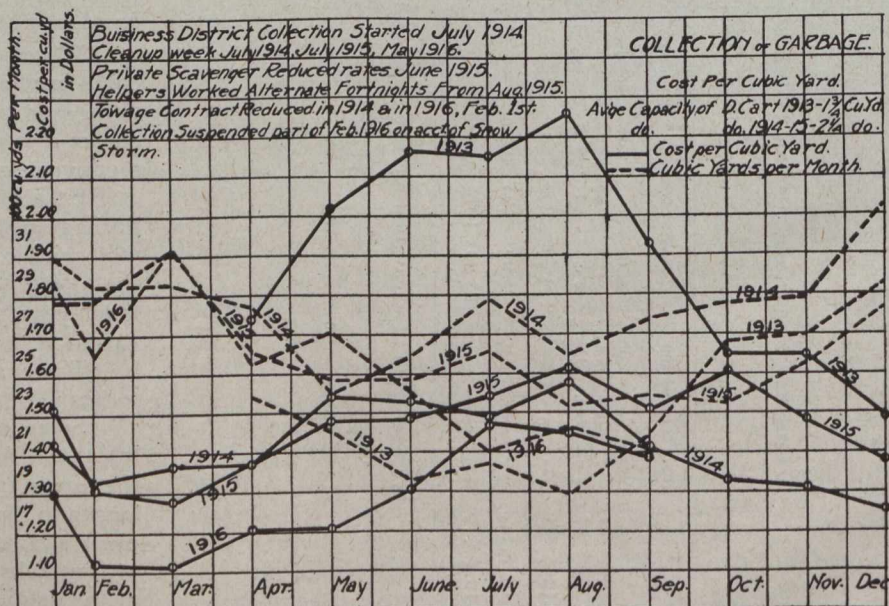 Buisiness District Collection Started July 1914
Cleanup week July 1914, July 1915, May 1916.
Private Scavenger Reduced rates June 1915.
Helpers Worked Alternate Fortnights From Aug. 1915.
Towage Contract Reduced in 1914 & in 1916, Feb. 1st.
Collection Suspended part of Feb. 1916 on acct of Snow
Storm.
COLLECTION OF GARBAGE.
Cost Per Cubic Yard.
Avge Capacity of D. Cart 1913-1¾ Cu Yd
do. do. 1914-15-2¼ do.
Cost per Cubic Yard.
Cubic Yards per Month.
100 cu. yds Per Month.
Cost per cu. yd
in Dollars.
2.20
2.10
2.00
31
1.90
29
1.80
27
1.70
25
1.60
23
1.50
21
1.40
19
1.30
17
1.20
1.10
1913
1916
1914
1914
1914
1913
1915
1915
1915
1913
1913
1916
1914
1915
1914
1915
1916
Jan Feb. Mar. Apr. May June. July Aug. Sep. Oct. Nov. Dec